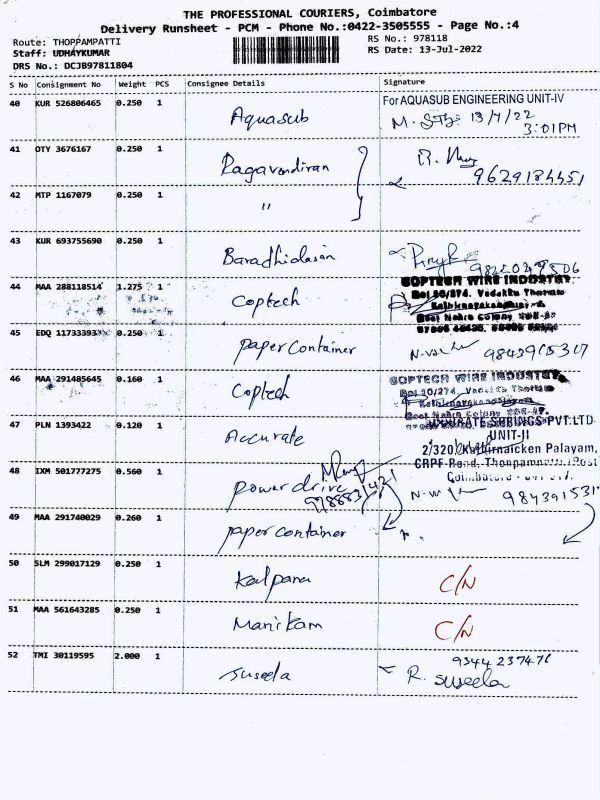 THE PROFESSIONAL COURIERS, Coimbatore
Delivery Runsheet - PCM - Phone No.:0422-3505555 - Page No.:4
Route: THOPPAMPATTI
RS No.: 978118
Staff: UDHAYKUMAR
RS Date: 13-Jul-2022
DRS No.: DCJB97811804
S No Consignment No Weight PCS Consignee Details Signature
40 KUR 526806465 0.250 1 Aquasub For AQUASUB ENGINEERING UNIT-IV
13/7/22
3:01PM
41 OTY 3676167 0.250 1 Ragavendiran
9629184451
42 MTP 1167079 0.250 1 "
43 KUR 693755690 0.250 1 Baradhidasan
44 MAA 288118514 1.275 1 Coptech COPTECH WIRE INDUSTRY
45 EDQ 11733393 0.250 1 paper container
46 MAA 291485645 0.160 1 Coptech COPTECH WIRE INDUSTRY
47 PLN 1393422 0.120 1 Accurate ACCURATE SPRINGS PVT.LTD
UNIT-II
2/320, Kalbirnaicken Palayam,
48 IXM 501777275 0.560 1 power drive
49 MAA 291740029 0.260 1 paper container
50 SLM 299017129 0.250 1 Kalpana C/N
51 MAA 561643285 0.250 1 Manikam C/N
52 TMI 30119595 2.000 1 suseela 9344237476
R. suseela